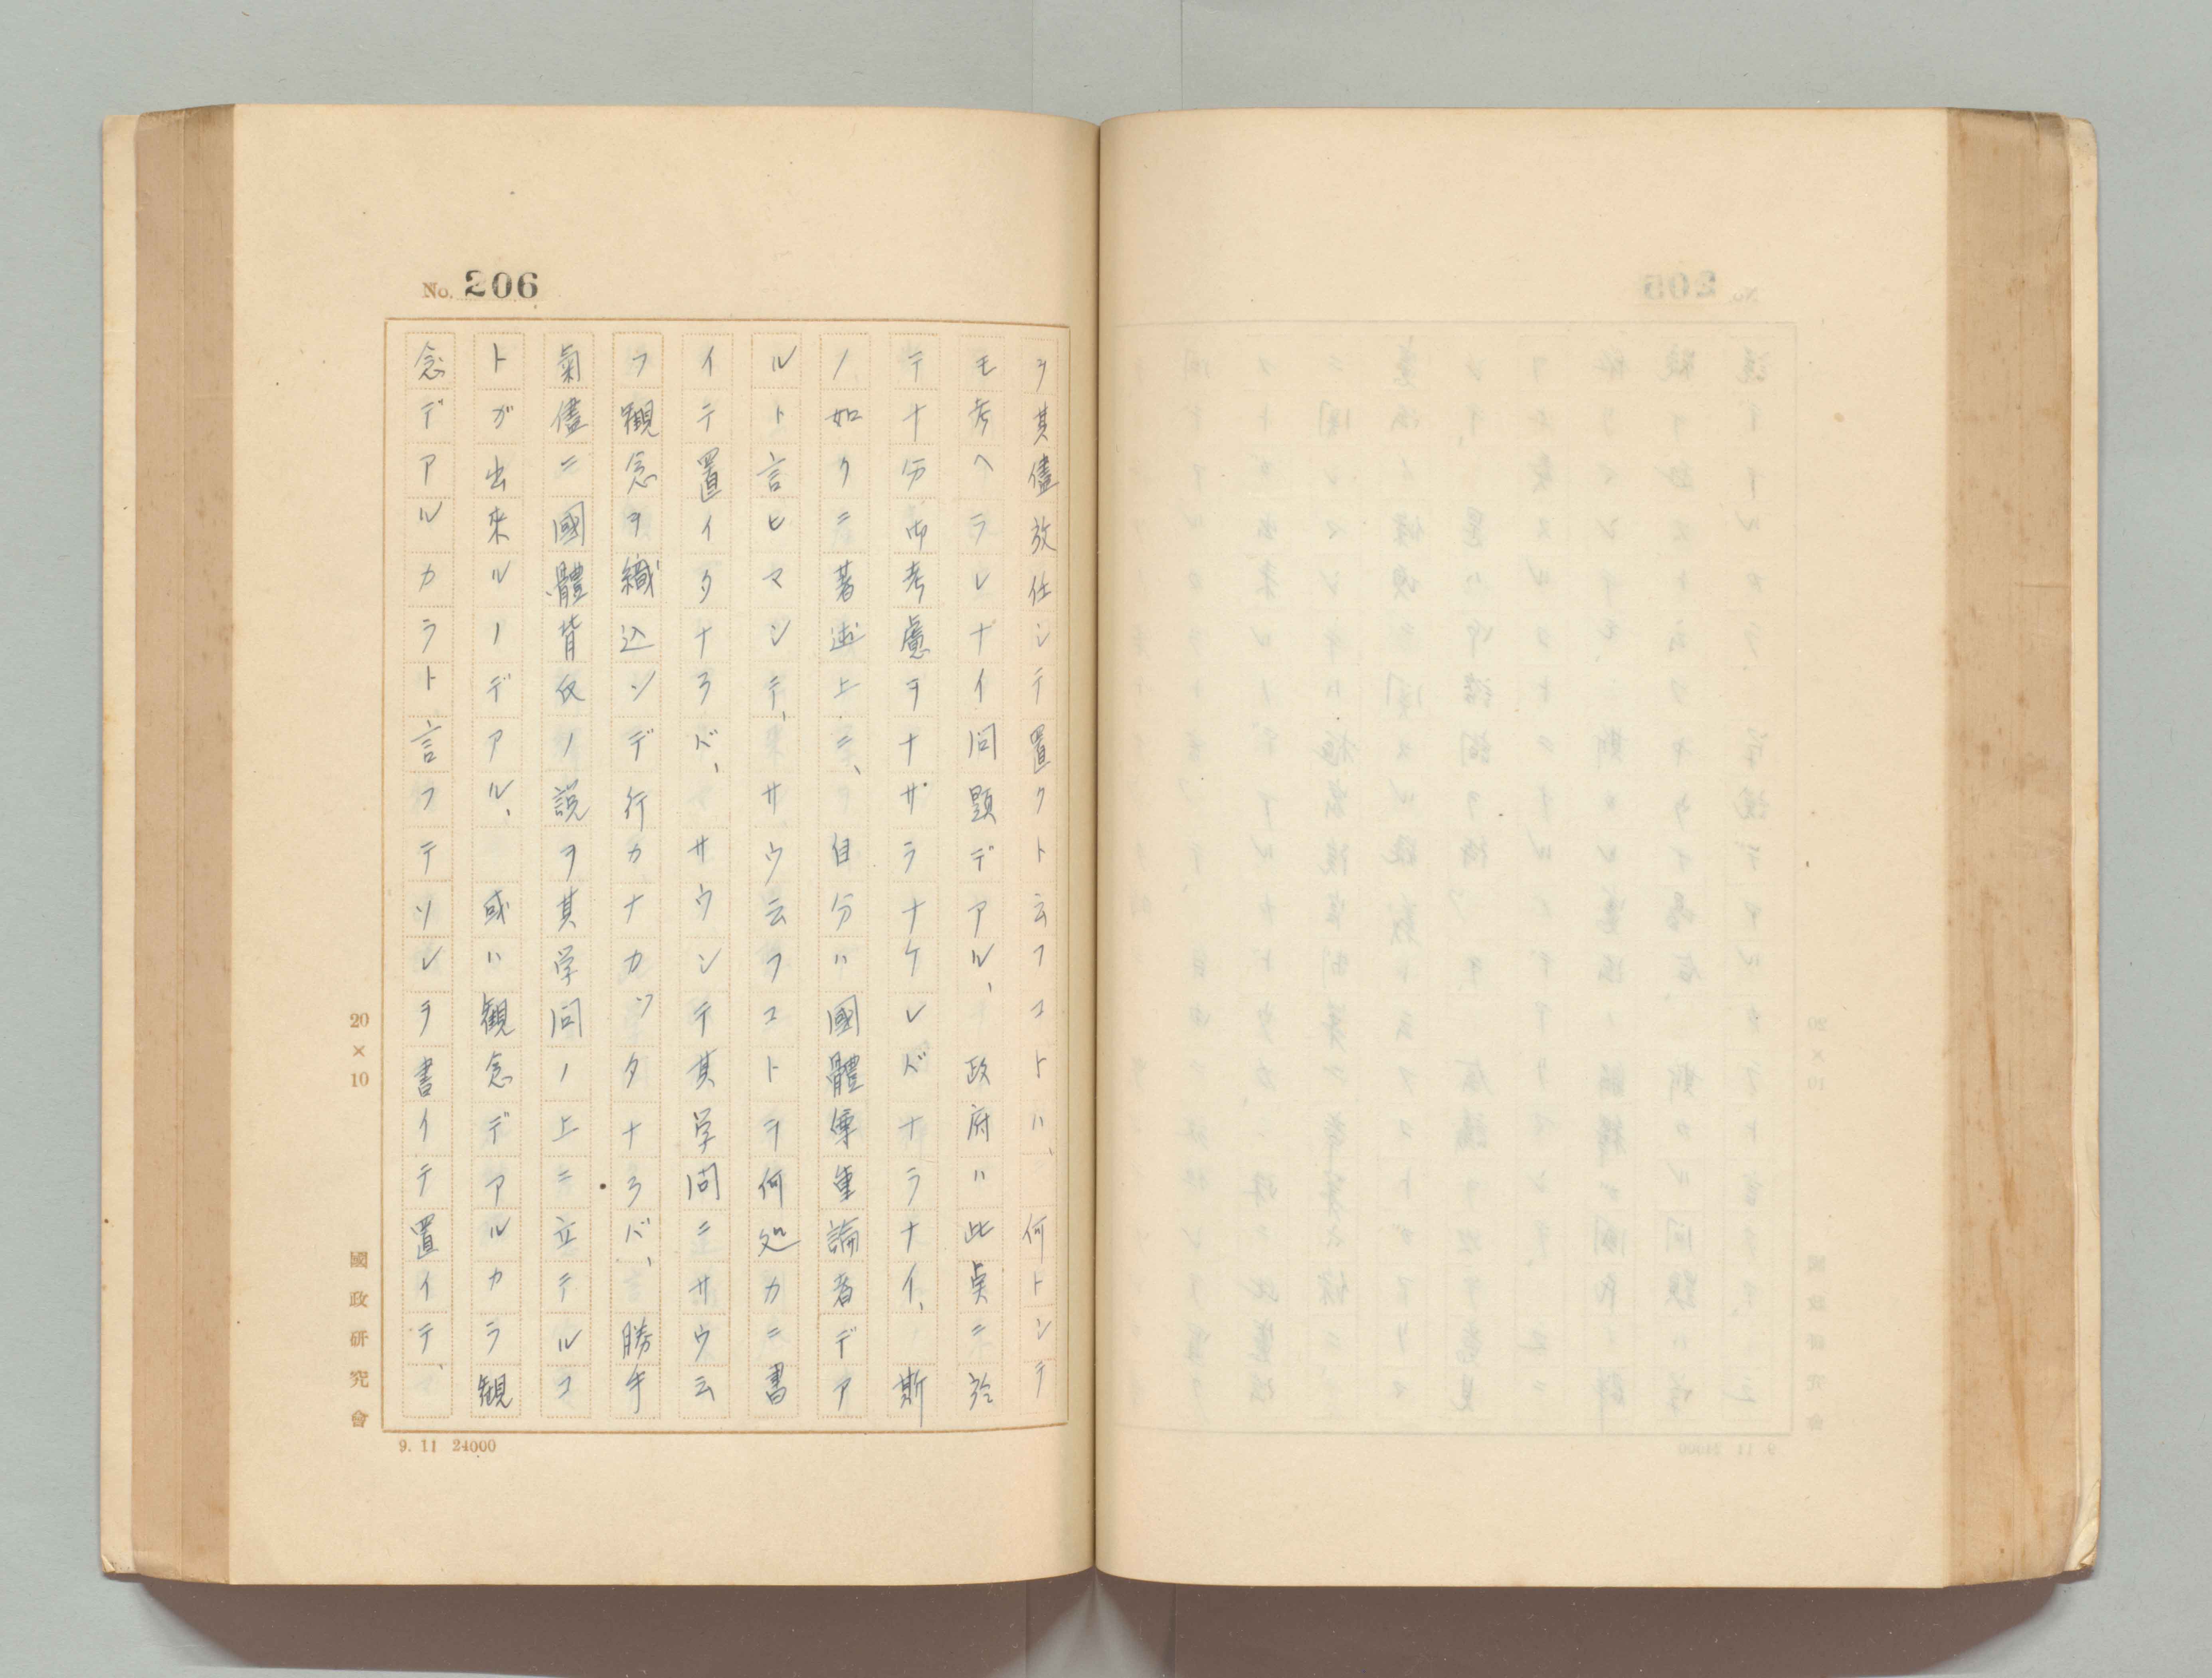 No. 206
ヲ其儘放任シテ置クト云フコトハ、何トシテ
モ考ヘラレナイ問題デアル、政府ハ此点ニ於
テ十分御考慮ヲナサラナケレバナラナイ、斯
ノ如クニ著述上ニ、自分ハ國體尊重論者デア
ルト言ヒマシテ、サウ云フコトヲ何処カニ書
イテ置イタナラバ、サウシテ其学問ニサウ云
フ観念ヲ織込ンデ行カナカツタナラバ、勝手
氣儘ニ國體背反ノ説ヲ其学問ノ上ニ立テルコ
トガ出來ルノデアル、或ハ観念デアルカラ観
念デアルカラト言フテソレヲ書イテ置イテ、
20×10
國政研究會
9. 11 24000